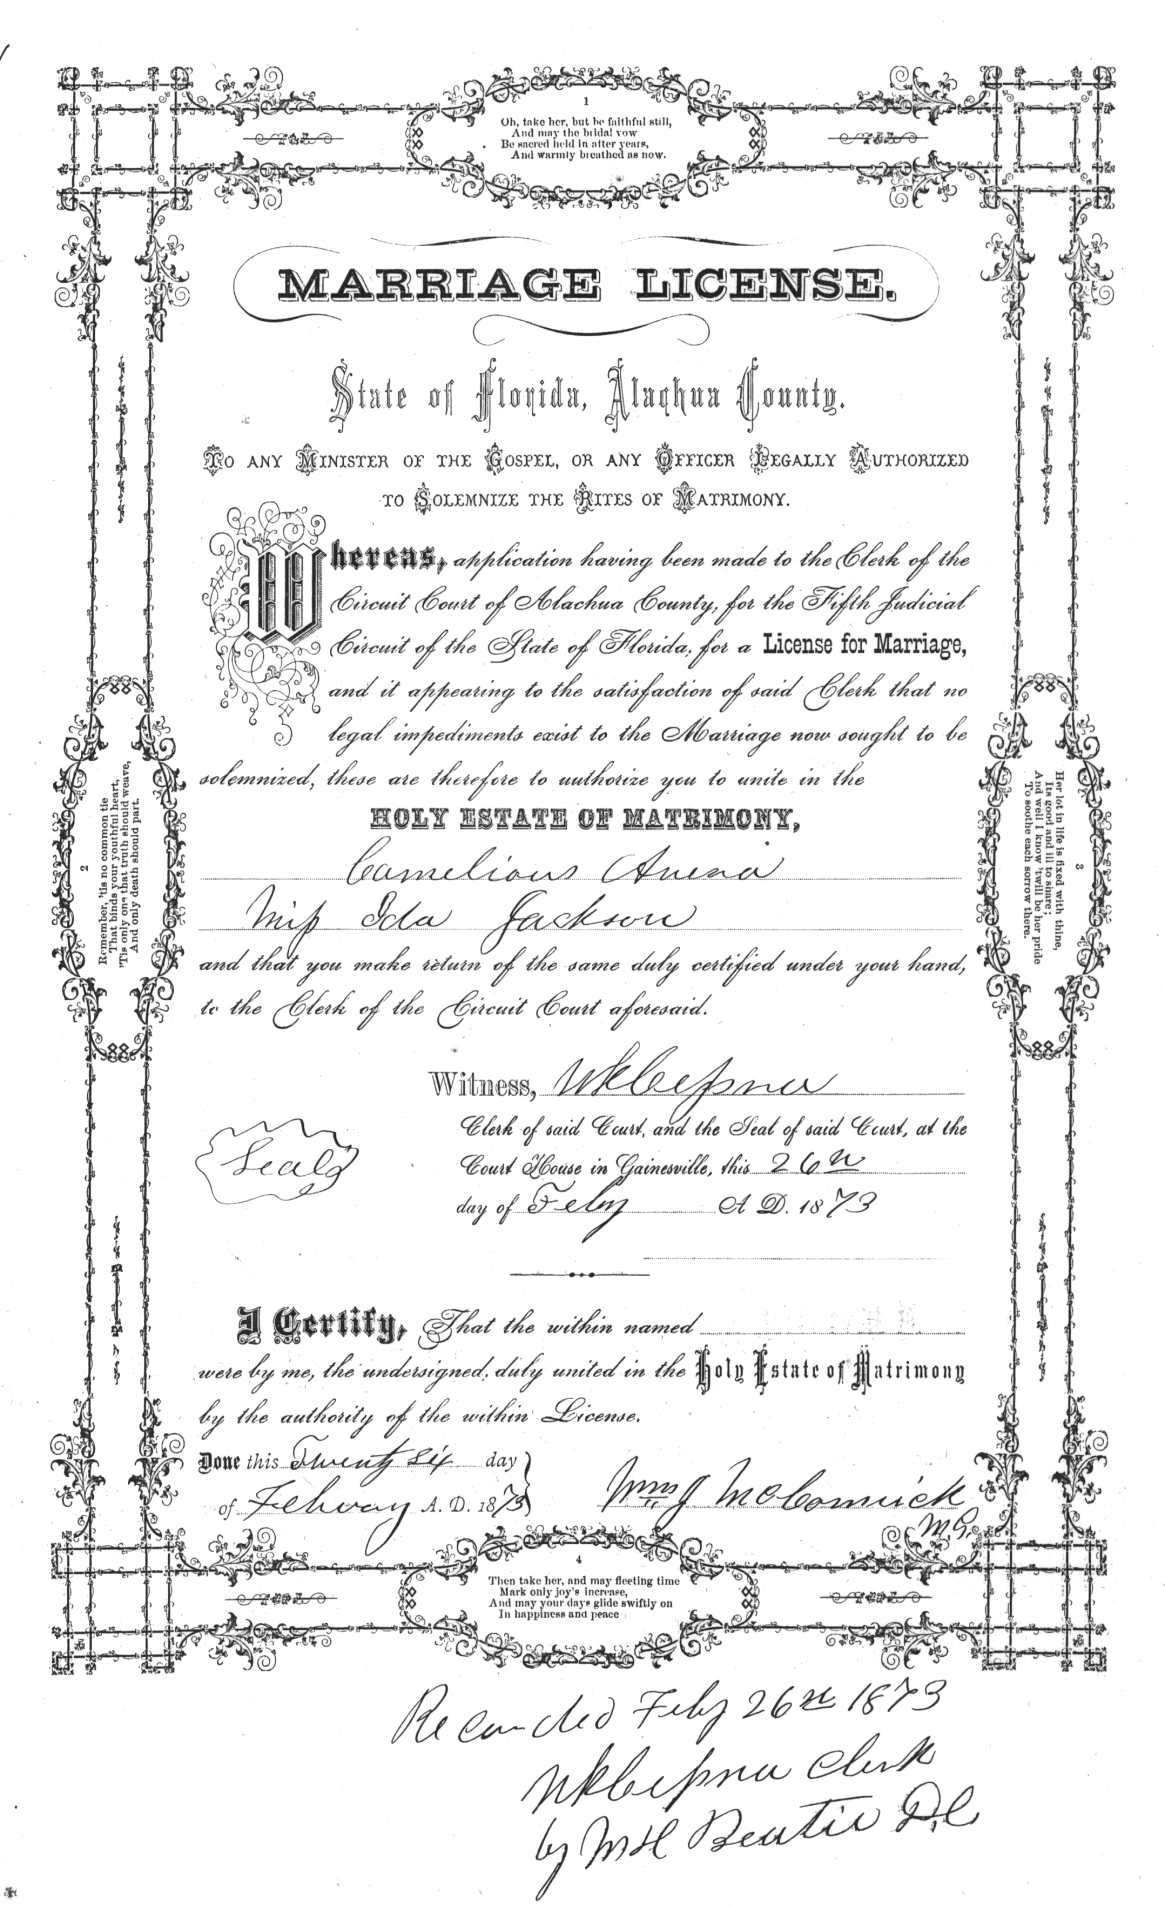 1
Oh, take her, but be faithful still,
And may the bridal vow
Be sacred held in after years,
And warmly breathed as now.
MARRIAGE LICENSE.
State of Florida, Alachua County.
TO ANY MINISTER OF THE GOSPEL, OR ANY OFFICER LEGALLY AUTHORIZED
TO SOLEMNIZE THE RITES OF MATRIMONY.
Whereas, application having been made to the Clerk of the
Circuit Court of Alachua County, for the Fifth Judicial
Circuit of the State of Florida, for a License for Marriage,
and it appearing to the satisfaction of said Clerk that no
legal impediments exist to the Marriage now sought to be
solemnized, these are therefore to authorize you to unite in the
HOLY ESTATE OF MATRIMONY,
Camelious
Miss Ida Jackson
and that you make return of the same duly certified under your hand,
to the Clerk of the Circuit Court aforesaid.
2
Remember, 'tis no common tie
That binds your youthful heart,
'Tis only one that truth should weave,
And only death should part.
3
Her lot in life is fixed with thine,
Its good and ill to share;
And well I know 'twill be her pride
To soothe each sorrow there.
Witness, WK Cessna
Clerk of said Court, and the Seal of said Court, at the
Seal
Court House in Gainesville, this 26th
day of Feby A.D. 1873
I Certify, That the within named
were by me, the undersigned, duly united in the Holy Estate of Matrimony
by the authority of the within License.
Done this Twenty Six day
of Febuary A.D. 1873
Wm J McCormick
M.G.
4
Then take her, and may fleeting time
Mark only joy's increase,
And may your days glide swiftly on
In happiness and peace
Recorded Feby 26th 1873
WK Cessna Clerk
by MH Beatie D.C